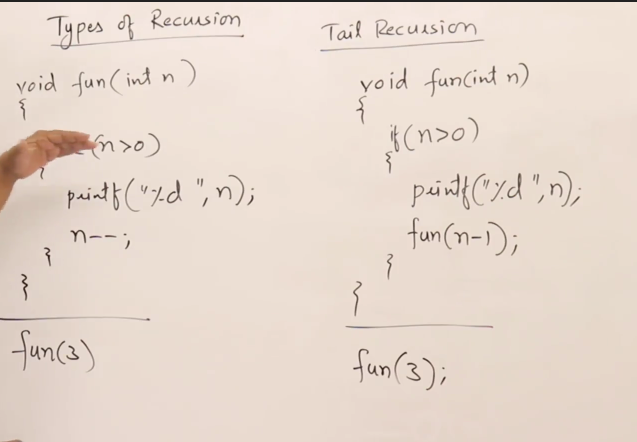 Types of Recursion
void fun(int n)
{
(n>0)
{
printf("%d ", n);
n--;
}
}
fun(3)
Tail Recursion
void fun(int n)
{
if(n>0)
{
printf("%d ", n);
fun(n-1);
}
}
fun(3);